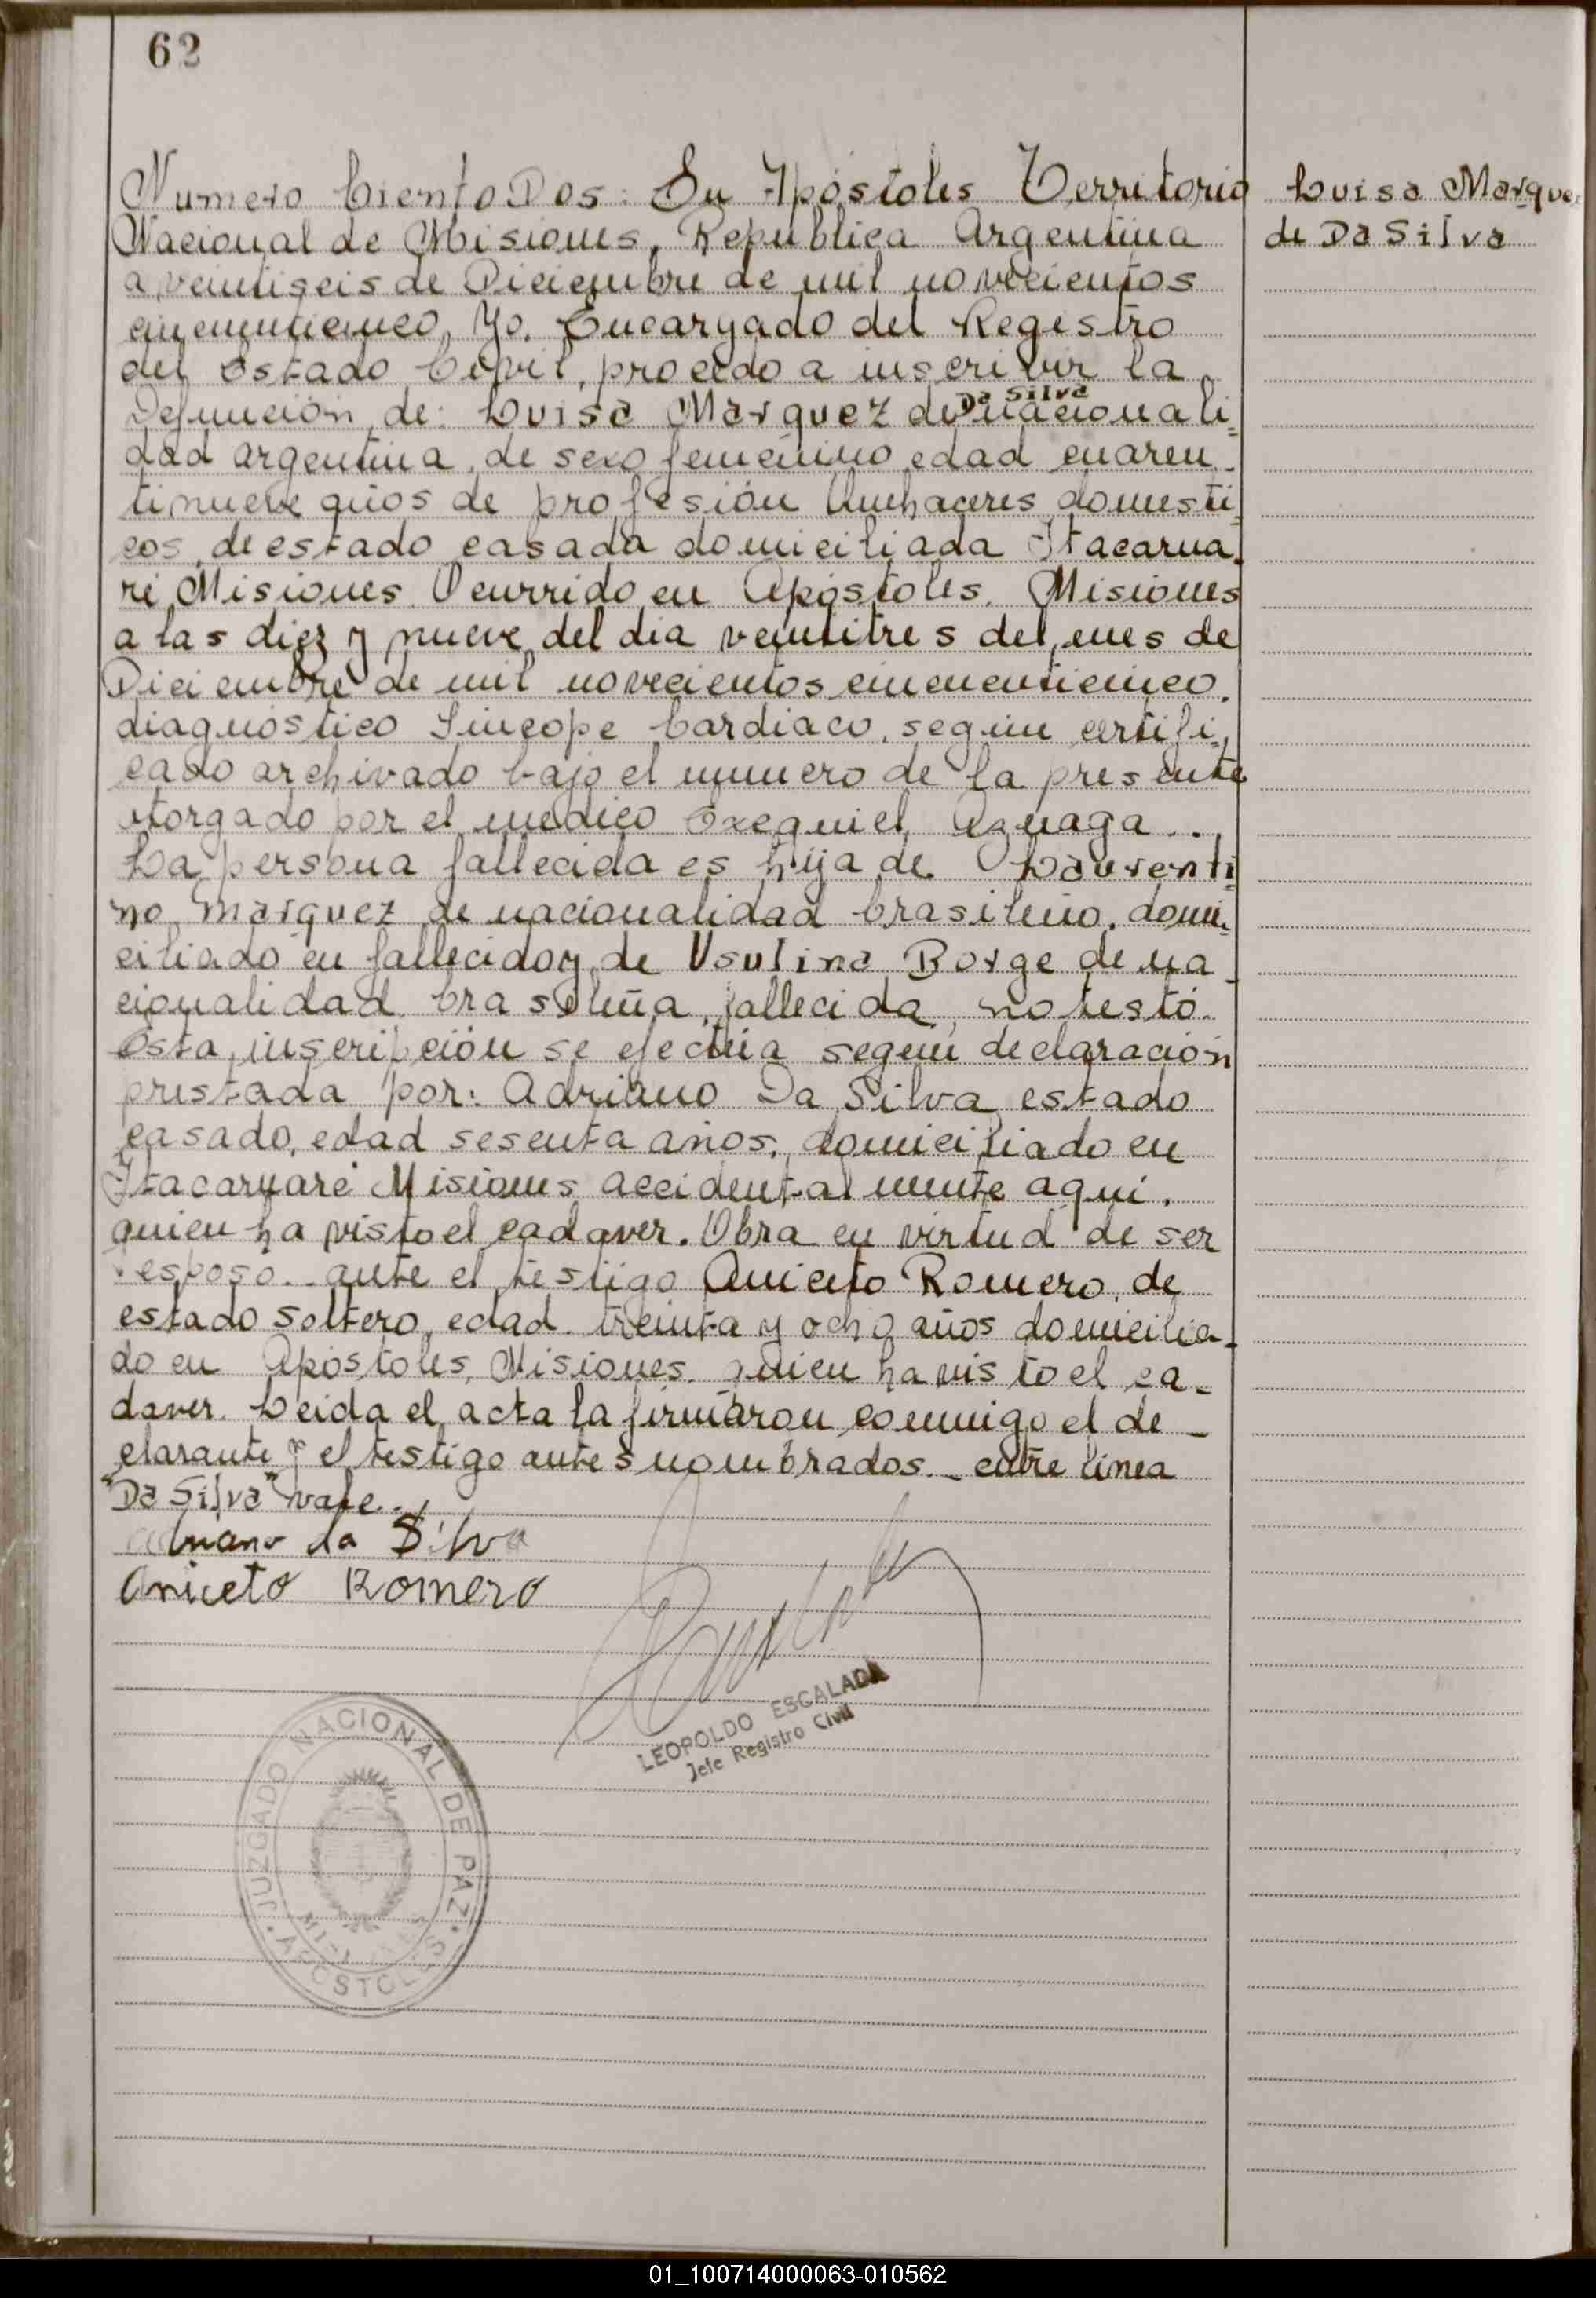 62
Numero Ciento Dos: En Apóstoles Territorio
Nacional de Misiones, Republica Argentina
a veintiseis de Diciembre de mil novecientos
cincuenticinco, Yo. Encargado del Registro
del Estado Civil, procedo a inscribir la
Defunción de: Luisa Marquez de Da Silva nacionali=
dad argentina, de sexo femenino edad cuaren-
tinueve años de profesión Quehaceres domesti=
cos, de estado casada domiciliada Itacarua-
ré Misiones. Ocurrido en Apóstoles. Misiones
a las diez y nueve del dia veintitres del mes de
Diciembre de mil novecientos cincuenticinco.
diagnóstico Sincope Cardiaco, según certifi=
cado archivado bajo el numero de la presente
otorgado por el medico Exequiel Aznaga..
La persona fallecida es hija de Laurenti=
no Marquez de nacionalidad brasileño, domi=
ciliado en fallecido y de Usulina Borge de na-
cionalidad brasileña, fallecida, no testó.
Esta inscripción se efectúa según declaración
prestada por: Adriano Da Silva estado
casado, edad sesenta años, domiciliado en
Itacaruaré Misiones accidentalmente aqui.
quien ha visto el cadaver. Obra en virtud de ser
esposo.. ante el testigo Aniceto Romero, de
estado soltero, edad treinta y ocho años domicilia-
do en Apóstoles, Misiones. quien ha visto el ca-
daver. Leida el acta la firmaron conmigo el de-
clarante y el testigo antes nombrados.- entre linea
"Da Silva" vale..
Adriano da Silva
Aniceto Romero
LEOPOLDO ESCALADA
Jefe Registro Civil
JUZGADO NACIONAL DE PAZ
APOSTOLES
Luisa Marquez
de Da Silva
01_100714000063-010562